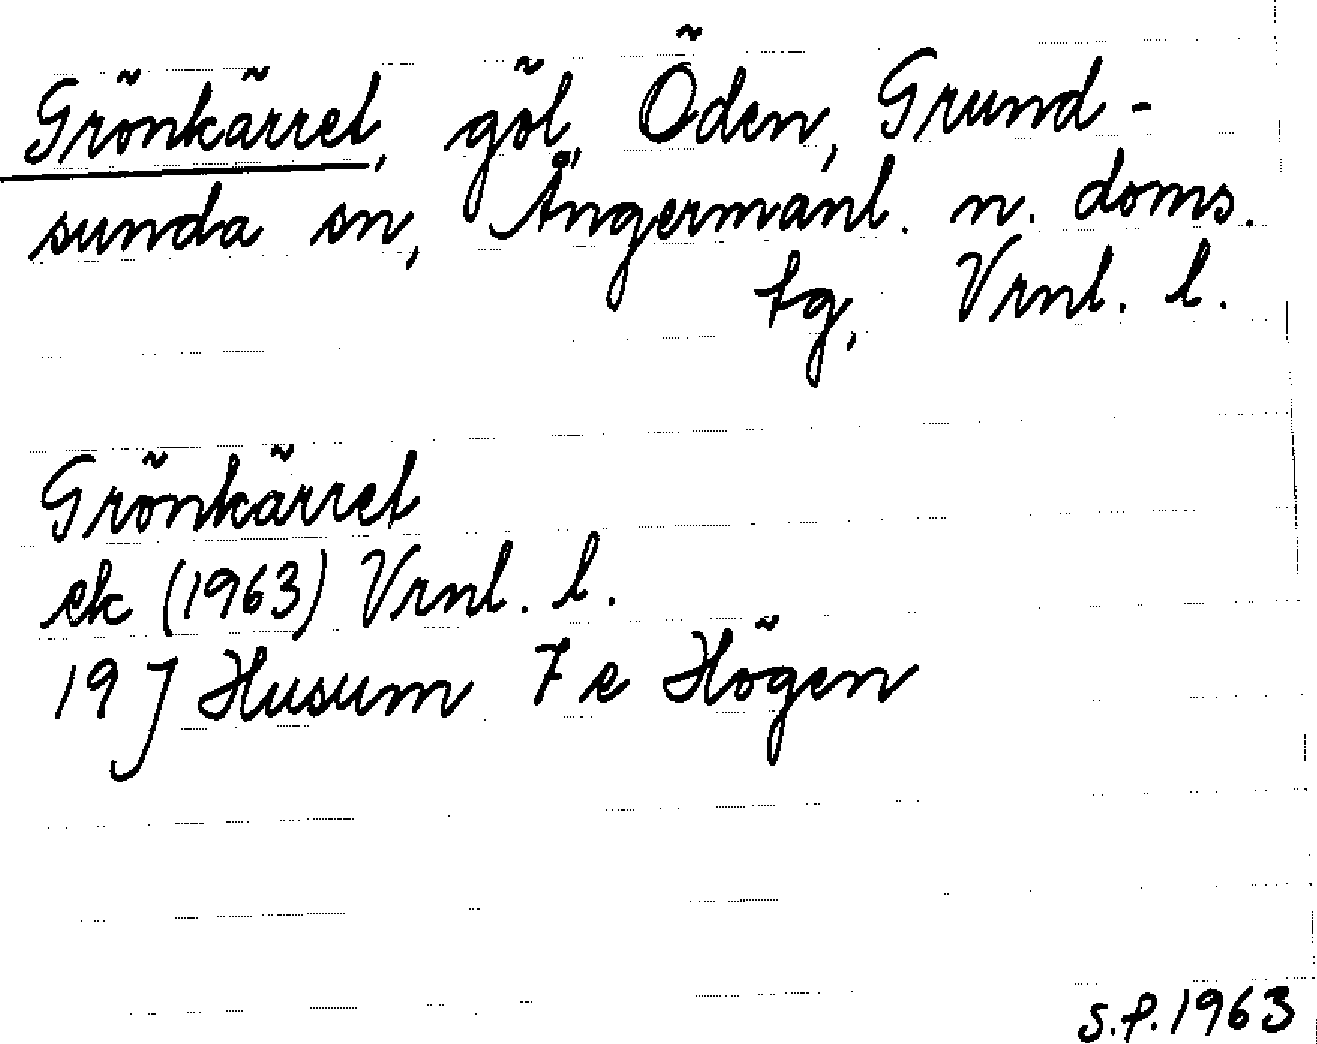 Grönkärret, göl, Öden, Grund-
sunda sn, Ångermanl. n. doms.
tg, Vrnl. l.
Grönkärret
ek (1963) Vrnl. l.
19 J Husum 7 e Högen
S.P. 1963